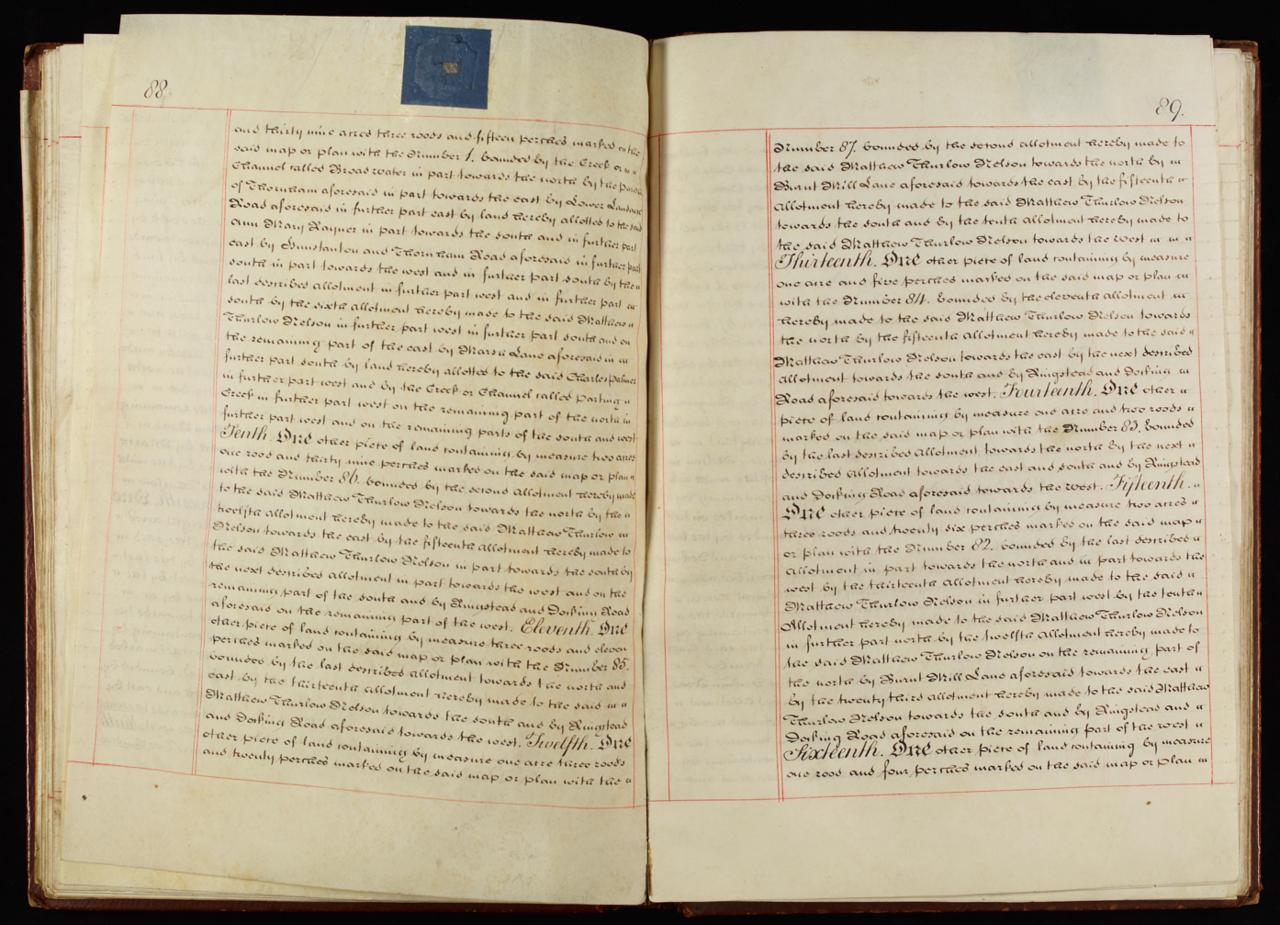 88.
and thirty nine acres three roods and fifteen perches marked on the
said map or plan with the Number 1. bounded by the Creek or
Channel called Broad water in part towards the north by the parish
of Thornham aforesaid in part towards the east by Lower Landsend
Road aforesaid in further part east by land hereby allotted to the said
Ann Mary Rayner in part towards the south and in further part
east by Hunstanton and Thornham Road aforesaid in further part
south in part towards the west and in further part south by the
last described allotment in further part west and in further part
south by the sixth allotment hereby made to the said Matthew
Thurlow Nelson in further part west in further part south and on
the remaining part of the east by Marsh Lane aforesaid in
further part south by land hereby allotted to the said Charles Palmer
in further part west and by the Creek or Channel called Parting
Creek in further part west on the remaining part of the north in
further part west and on the remaining parts of the south and west
Tenth. One other piece of land containing by measure two acres
one rood and thirty nine perches marked on the said map or plan
with the Number 86. bounded by the second allotment hereby made
to the said Matthew Thurlow Nelson towards the north by the
twelfth allotment hereby made to the said Matthew Thurlow
Nelson towards the east by the fifteenth allotment hereby made to
the said Matthew Thurlow Nelson in part towards the south by
the next described allotment in part towards the west and on the
remaining part of the south and by Ringstead and Docking Road
aforesaid on the remaining part of the west. Eleventh. One
other piece of land containing by measure three roods and eleven
perches marked on the said map or plan with the Number 85.
bounded by the last described allotment towards the north and
east by the thirteenth allotment hereby made to the said
Matthew Thurlow Nelson towards the south and by Ringstead
and Docking Road aforesaid towards the west. Twelfth. One
other piece of land containing by measure one acre three roods
and twenty perches marked on the said map or plan with the
89.
Number 87. bounded by the second allotment hereby made to
the said Matthew Thurlow Nelson towards the north by
Burnt Mill Lane aforesaid towards the east by the fifteenth
allotment hereby made to the said Matthew Thurlow Nelson
towards the south and by the tenth allotment hereby made to
the said Matthew Thurlow Nelson towards the west
Thirteenth. One other piece of land containing by measure
one acre and five perches marked on the said map or plan
with the Number 84. bounded by the eleventh allotment
hereby made to the said Matthew Thurlow Nelson towards
the north by the fifteenth allotment hereby made to the said
Matthew Thurlow Nelson towards the east by the next described
allotment towards the south and by Ringstead and Docking
Road aforesaid towards the west. Fourteenth. One other
piece of land containing by measure one acre and two roods
marked on the said map or plan with the Number 83. bounded
by the last described allotment towards the north by the next
described allotment towards the east and south and by Ringstead
and Docking Road aforesaid towards the west. Fifteenth.
One other piece of land containing by measure two acres
three roods and twenty six perches marked on the said map
or plan with the Number 82. bounded by the last described
allotment in part towards the north and in part towards the
west by the thirteenth allotment hereby made to the said
Matthew Thurlow Nelson in further part west by the tenth
Allotment hereby made to the said Matthew Thurlow Nelson
in further part north by the twelfth allotment hereby made to
the said Matthew Thurlow Nelson on the remaining part of
the north by Burnt Mill Lane aforesaid towards the east
by the twenty third allotment hereby made to the said Matthew
Thurlow Nelson towards the south and by Ringstead and
Docking Road aforesaid on the remaining part of the west
Sixteenth. One other piece of land containing by measure
one rood and four perches marked on the said map or plan